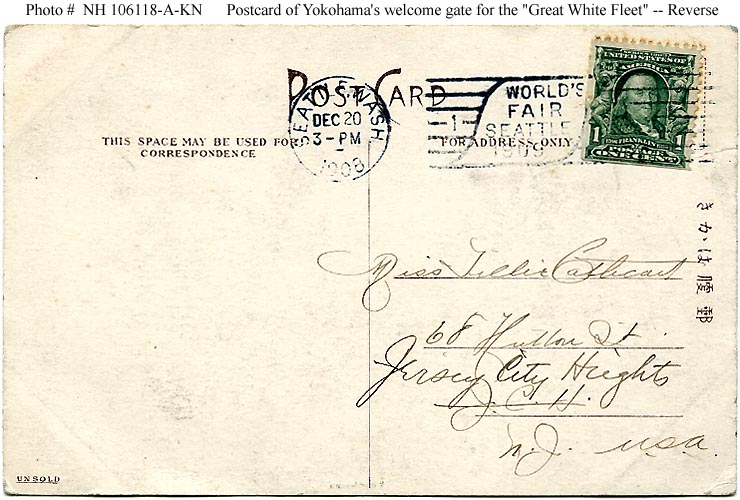 Photo # NH 106118-A-KN Postcard of Yokohama's welcome gate for the "Great White Fleet" -- Reverse
POST CARD
SEATTLE, WASH
DEC 20
3-PM
1908
1
WORLD'S
FAIR
SEATTLE
1909
UNITED STATES OF
AMERICA
FRANKLIN
1 1
POSTAGE
ONE CENT
THIS SPACE MAY BE USED FOR
CORRESPONDENCE
FOR ADDRESS ONLY
きかは便郵
Miss Tillie Cathcart
68 Hutton St.
Jersey City Heights
J. C. H.
N.J. U.S.A.
UNSOLD